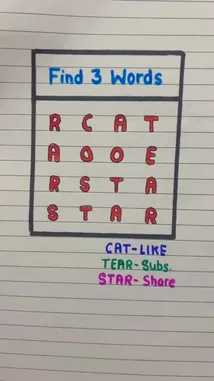 Find 3 Words
R C A T
A O O E
R S T A
S T A R
CAT-LIKE
TEAR-Subs.
STAR-Share